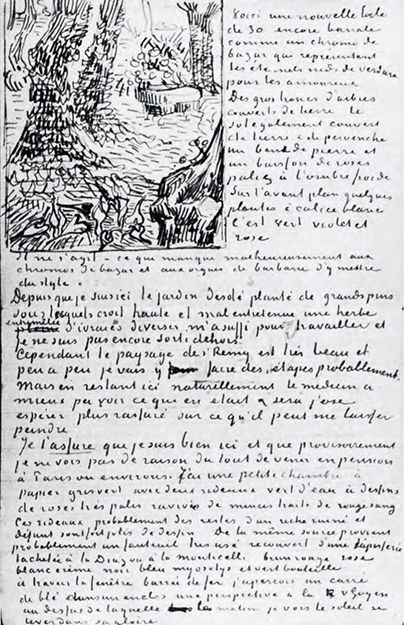 Voici une nouvelle toile
de 30 encore banale
comme un chromo de
bazar qui represente
les éternels nids de verdure
pour les amoureux
Des gros troncs d'arbres
couverts de lierre le
sol egalement couvert
de lierre & de pervenche
un banc de pierre et
un buisson de roses
pales à l'ombre froide
Sur l'avant plan quelques
plantes à calice blanc
C'est vert violet et
rose
Il ne s'agit – ce qui manque malheureusement aux
chromos de bazar et aux orgues de barbarie d'y mettre
du style.
Depuis que je suis ici le jardin desolé planté de grands pins
sous lesquels croit haute et mal entretenue une herbe
entremêlée d'ivraies diverses m'a suffi pour travailler et
je ne suis pas encore sorti dehors.
Cependant le paysage de St Remy est très beau et
peu a peu je vais y faire des étapes probablement.
Mais en restant ici naturellement le medecin a
mieux pu voir ce qui en etait & sera j'ose
espérer plus rassuré sur ce qu'il peut me laisser
peindre
Je t'assure que je suis bien ici et que provisoirement
je ne vois pas de raison du tout de venir en pension
à Paris ou environs. J'ai une petite chambre à
papier gris vert avec deux rideaux vert d'eau à dessins
de roses très pales ravivés de minces traits de rouge sang
Ces rideaux probablement des restes d'un riche ruiné et
défunt sont fort jolis de dessin. De la même source provient
probablement un fauteuil très usé recouvert d'une tapisserie
tachetée à la Diaz ou à la Monticelli brun rouge rose
blanc crème noir bleu myosotys et vert bouteille
à travers la fenêtre barrée de fer j'aperçois un carré
de blé dans un enclos une perspective a la V Goyen
au dessus de laquelle le matin je vois le soleil se
lever dans sa gloire